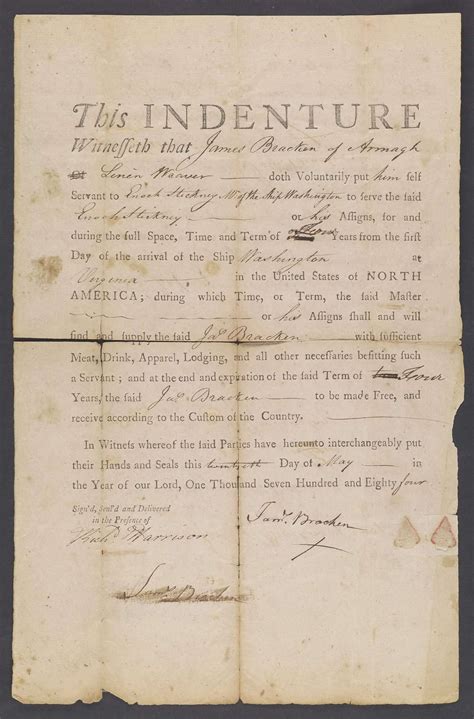 This INDENTURE
Witneſſeth that James Bracken of Armagh
Linen Weaver doth Voluntarily put him ſelf
Servant to Enoch Stickney Mr. of the Ship Washington to ſerve the ſaid
Enoch Stickney or his Aſſigns, for and
during the full Space, Time and Term of Four Years from the firſt
Day of the arrival of the Ship Washington at
Virginia in the United States of NORTH
AMERICA; during which Time, or Term, the ſaid Maſter
or his Aſſigns ſhall and will
find and ſupply the ſaid Jas. Bracken with ſufficient
Meat, Drink, Apparel, Lodging, and all other neceſſaries befitting ſuch
a Servant; and at the end and expiration of the ſaid Term of Four
Years, the ſaid Jas. Bracken to be made Free, and
receive according to the Cuſtom of the Country.
In Witneſs whereof the ſaid Parties have hereunto interchangeably put
their Hands and Seals this twentieth Day of May in
the Year of our Lord, One Thouſand Seven Hundred and Eighty four
Sign'd, Seal'd and Delivered
in the Preſence of
Richd. Harrison
Jams. Bracken
Jams. Bracken